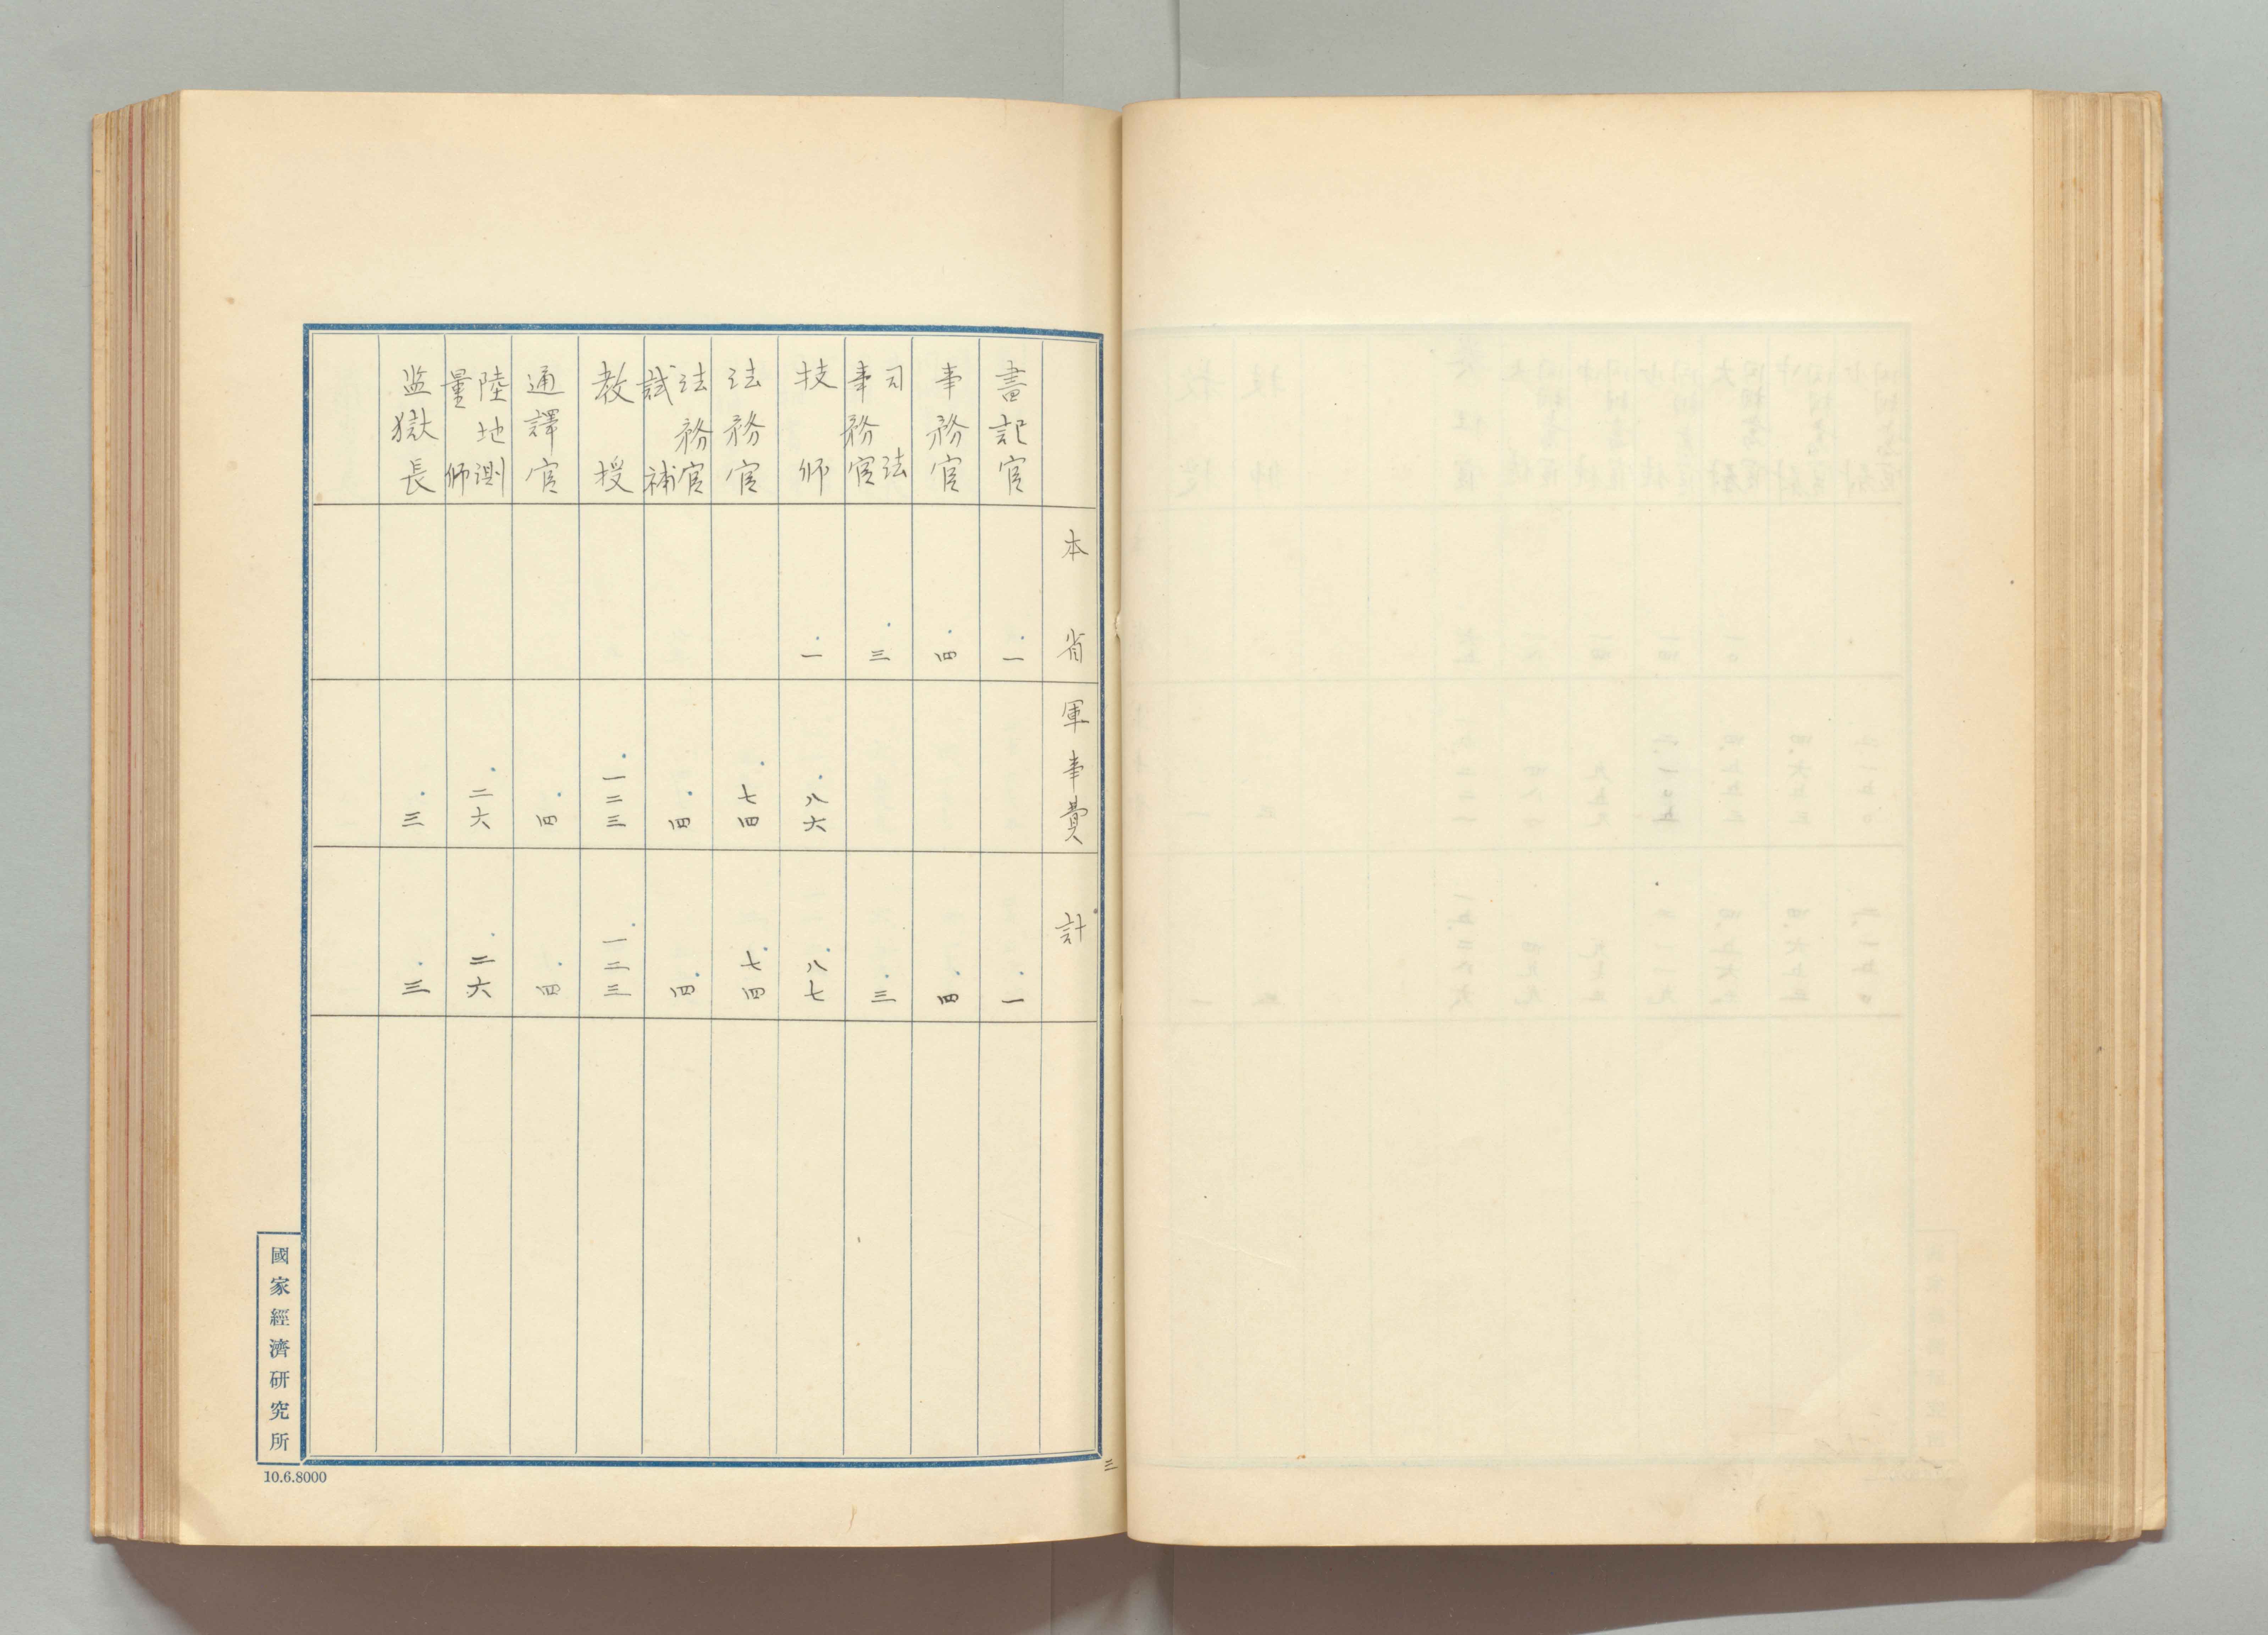 本省 軍事費 計
書記官 一 一
事務官 四 四
司法事務官 三 三
技師 一 八六 八七
法務官 七四 七四
法務官試補 四 四
教授 一二三 一二三
通譯官 四 四
陸地測量師 二六 二六
監獄長 三 三
三
國家經濟研究所
10.6.8000